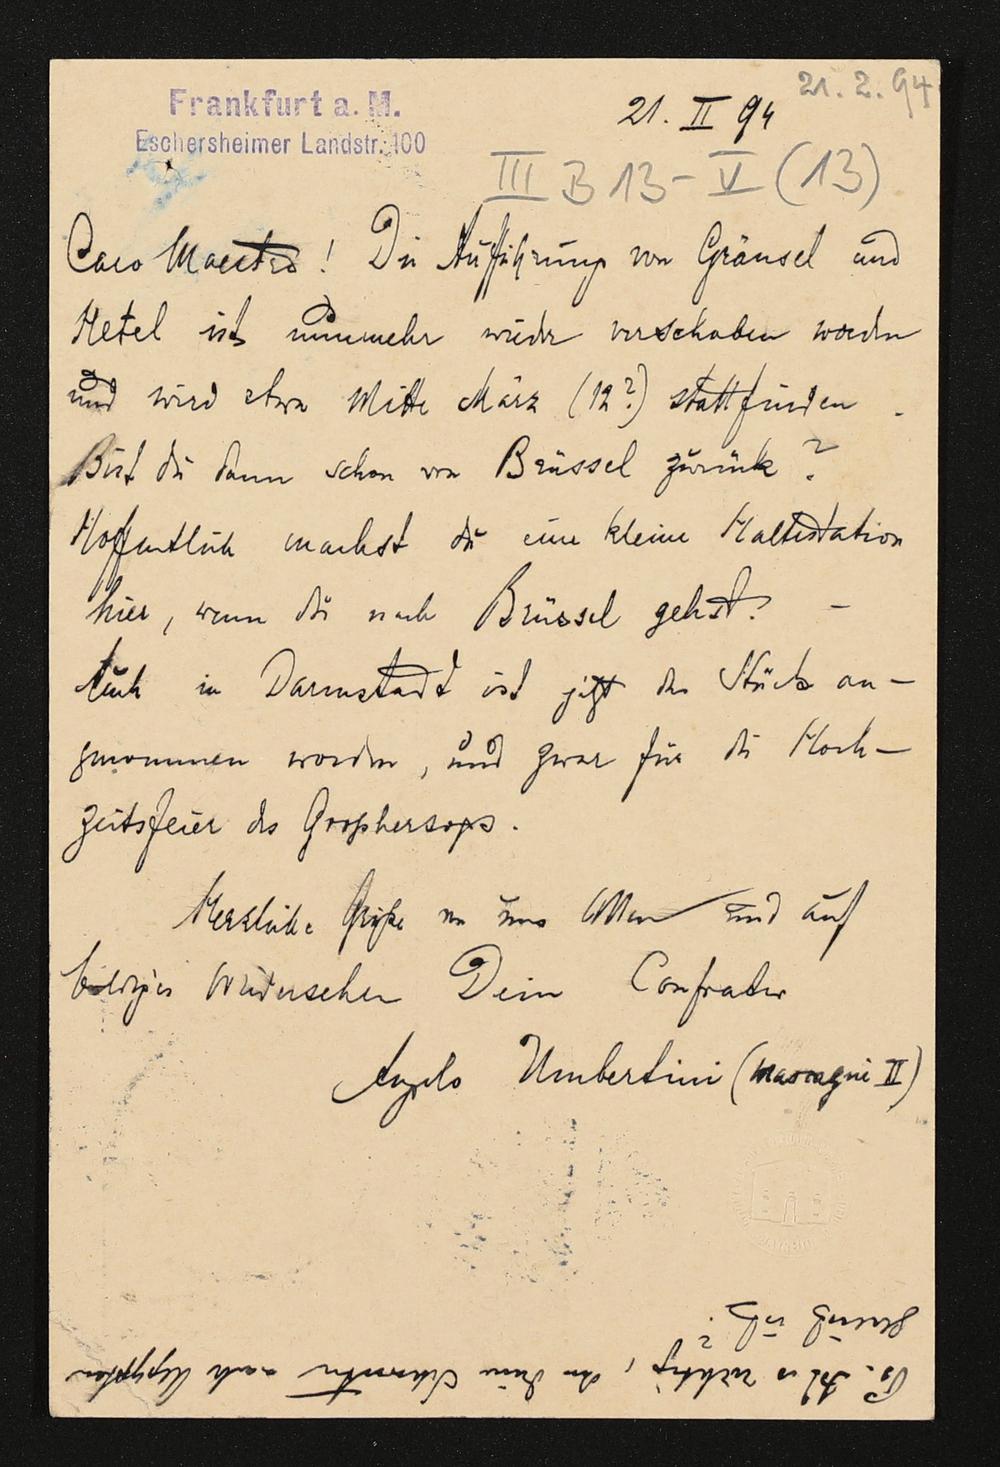 Frankfurt a. M.
Eschersheimer Landstr. 100
21. 2. 94
21. II 94
III B 13 - V (13)
Caro Maestro! Die Aufführung von Gränsel und
Hetel ist nunmehr wieder verschoben worden
und wird etwa Mitte März (12?) stattfinden.
Bist du dann schon von Brüssel zurück?
Hoffentlich machst du eine kleine Haltestation
hier, wenn du nach Brüssel gehst? –
Auch in Darmstadt ist jetzt das Stück an-
genommen worden, und zwar für die Hoch-
zeitsfeier des Großherzogs.
Herzliche Grüße von uns Allen und auf
baldiges Wiedersehen Dein Confrater
Angelo Umbertini (Mascagni II)
Ps. Ist es richtig, daß deine nach Aegypten